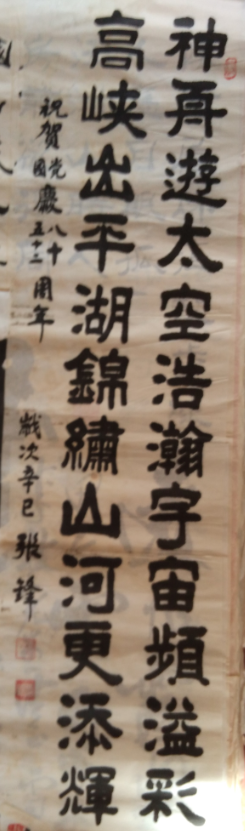 神舟遊太空浩瀚宇宙頻溢彩
高峡出平湖錦繡山河更添輝
祝賀党八十国慶五十二周年
歲次辛巳 張鋒